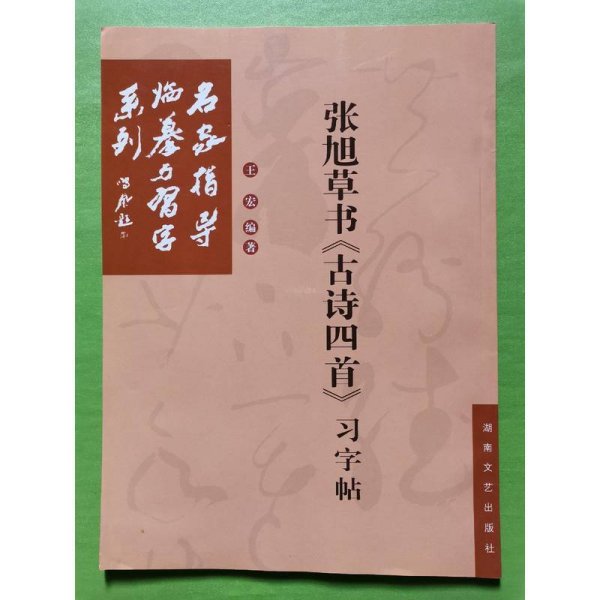 张旭草书《古诗四首》习字帖
王宏编著
名家指导
临摹与习字
系列
湖南文艺出版社